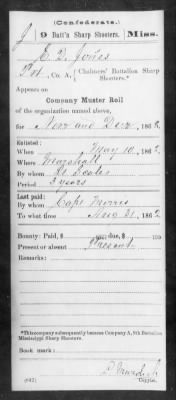 (Confederate.)
J 9 Batt'n Sharp Shooters. Miss.
E. D. Jones
Pvt, Co. A, (Chalmers' Battalion Sharp Shooters.*)
Appears on
Company Muster Roll
of the organization named above,
for Nov and Dec, 186 2
Enlisted:
When May 10, 186 2
Where
By whom Lt
Period 3 years
Last paid:
By whom Capt Morris
To what time Aug 31, 186 2
Bounty: Paid, $ due, $ 100
Present or absent Present
Remarks:
*This company subsequently became Company A, 9th Battalion
Mississippi Sharp Shooters.
Book mark:
(642)
Copyist.